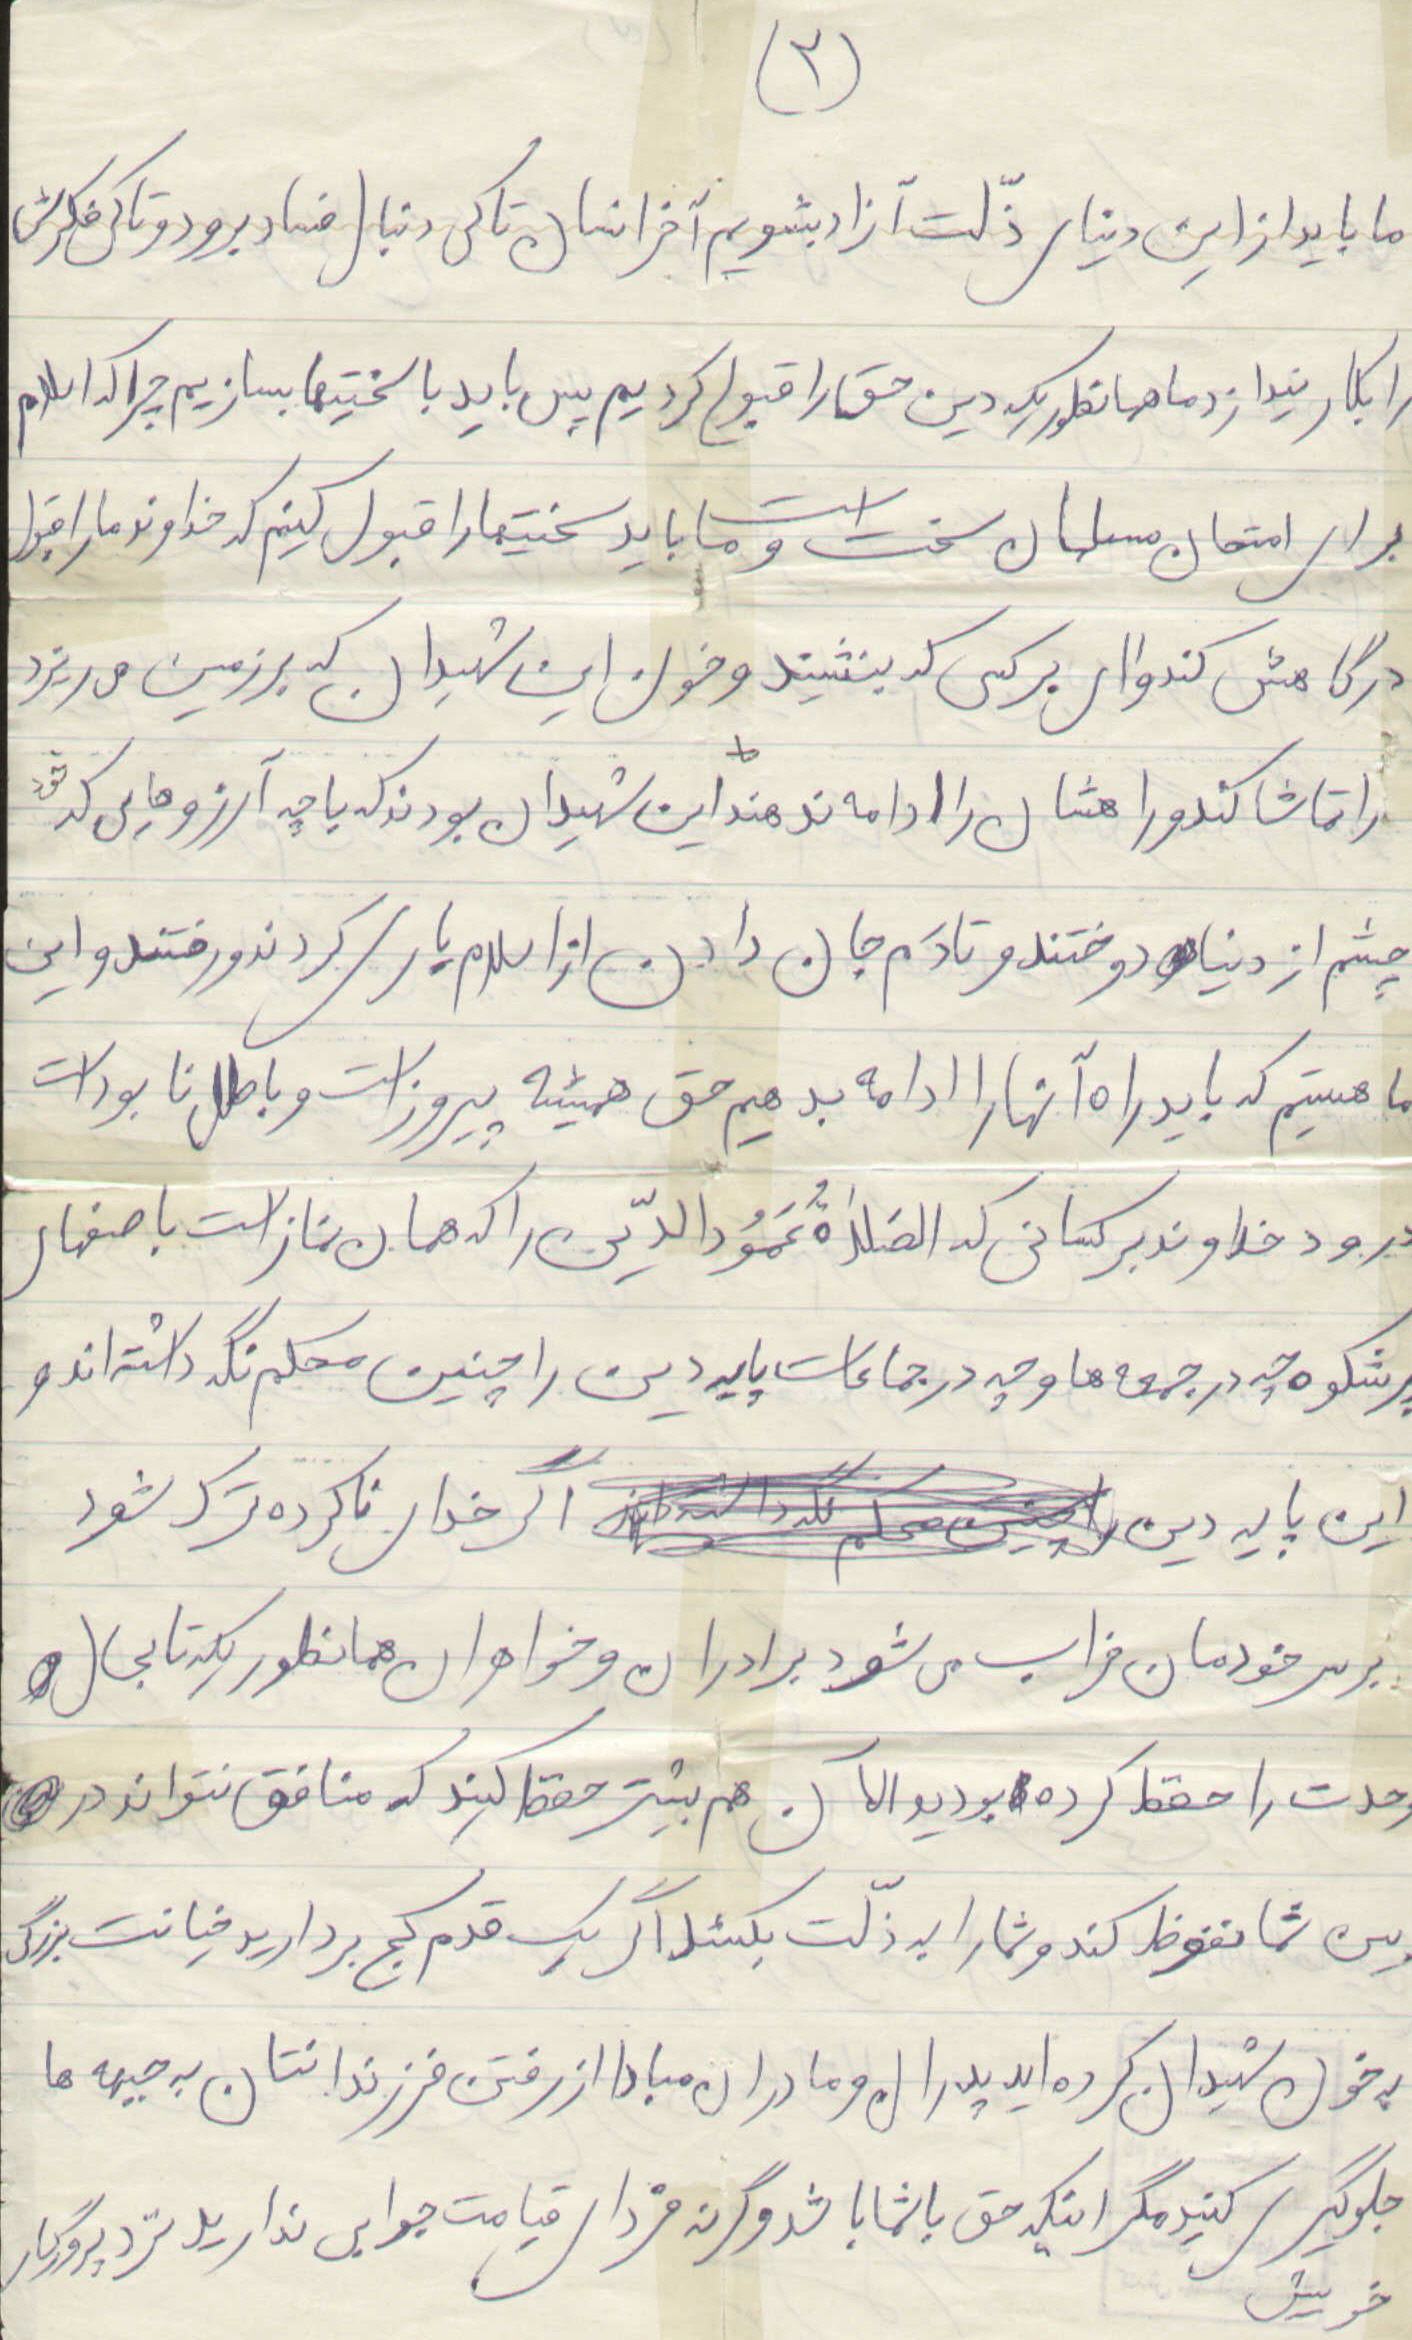 (۲)
ما باید از این دنیای ذلّت آزاد بشویم آخر انسان تا کی دنبال فساد برود و تا کی فکرش
را بکار نیندازد ما همانطوریکه دین حق را قبول کردیم پس باید با سختیها بسازیم چرا که اسلام
برای امتحان مسلمان سخت است و ما باید سختیها را قبول کنیم که خداوند ما را قبول
درگاهش کند وای بر کسی که بنشیند و خون این شهیدان که بر زمین می ریزد
را تماشا کند و راهشان را ادامه ندهند این شهیدان بودند که با چه آرزوهایی که خود
چشم از دنیا دوختند و تا دَم جان دادن از اسلام یاری کردند و رفتند و این
ما هستیم که باید راه آنها را ادامه بدهیم حق همیشه پیروز است و باطل نابود است
درود خداوند بر کسانی که الصَلاةُ عَمَوُدالدّین را که همان نماز است با صفهای
پرشکوه چه در جمعه ها و چه در جماعات پایه دین را چنین محکم نگه داشته اند و
این پایه دین اگر خدای ناکرده ترک شود
بر سر خودمان خراب می شود برادران و خواهران همانطوریکه تا بحال
وحدت را حفظ کرده بودید الآن هم بیشتر حفظ کنید که منافق نتواند در
بین شما نفوظ کند و شما را به ذلّت بکشد اگر یک قدم کج بردارید خیانت بزرگی
به خون شهیدان کرده اید پدران و مادران مبادا از رفتن فرزندانتان به جبهه ها
جلوگیری کنید مگر اینکه حق با شما باشد وگرنه فردای قیامت جوابی ندارید نزد پروردگار
خویش